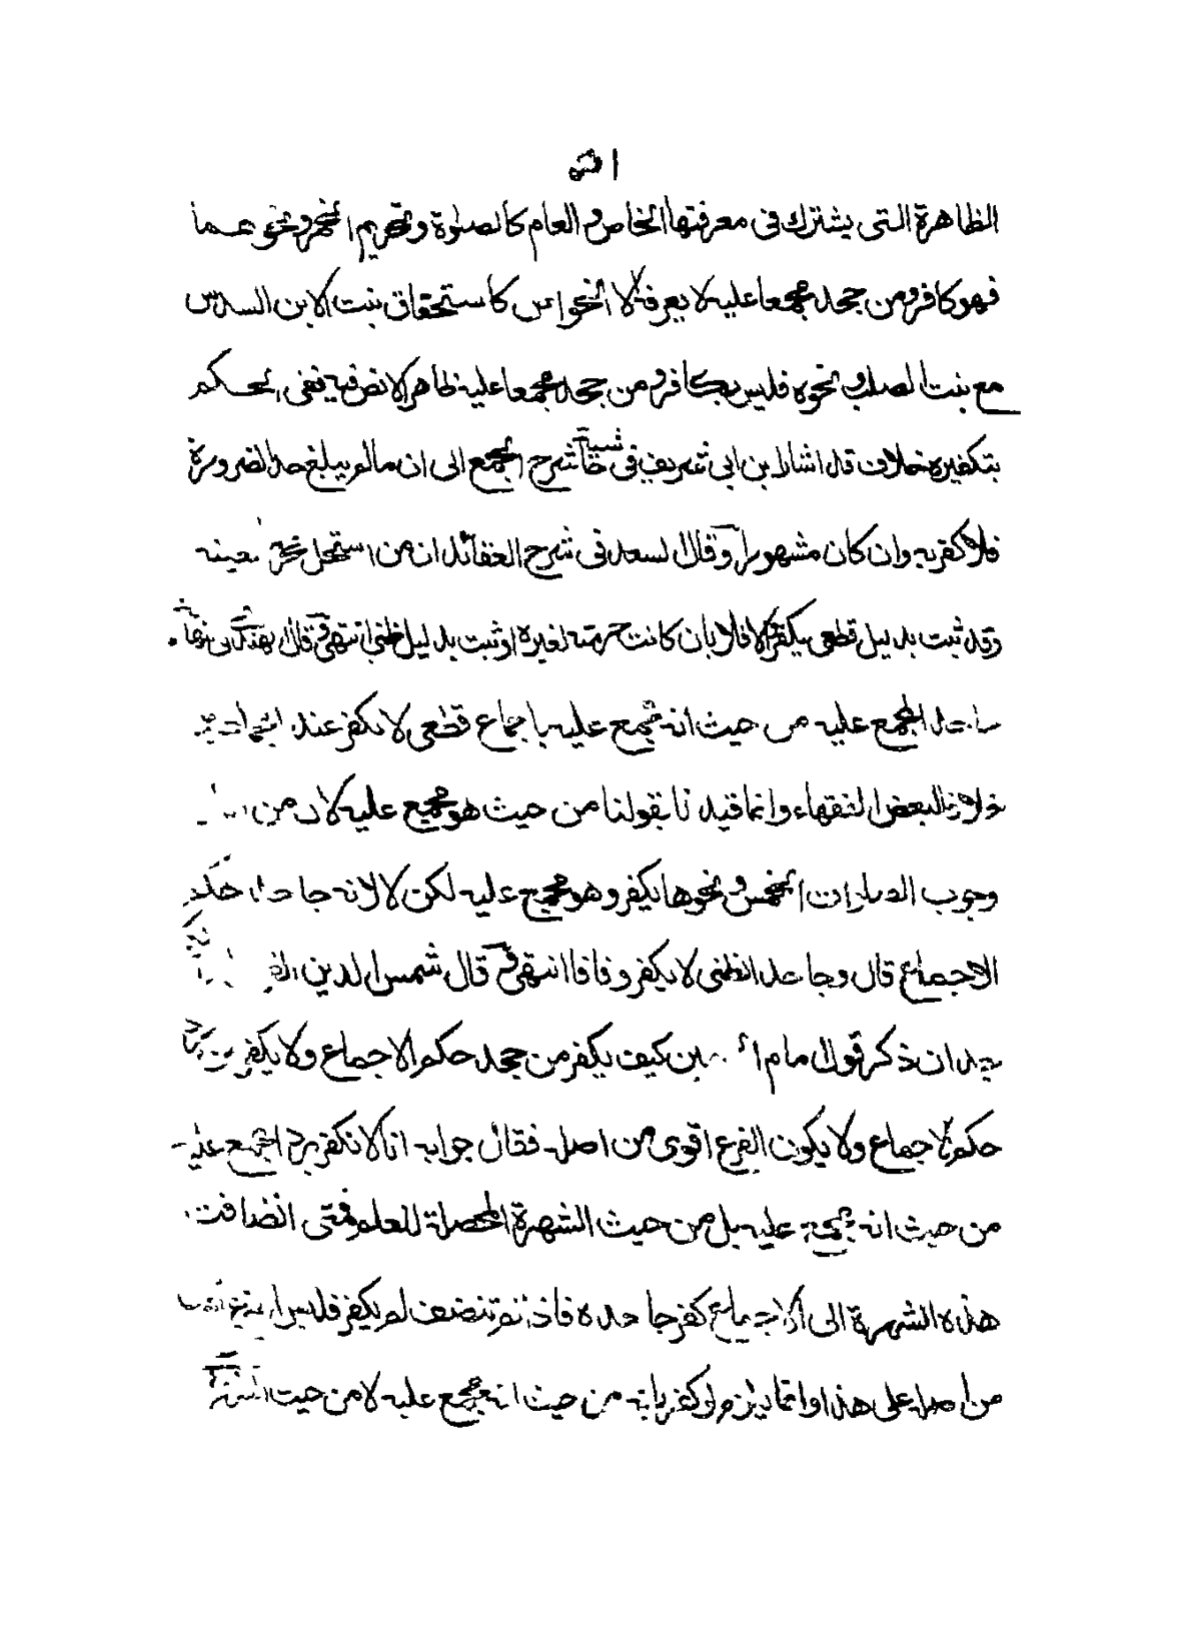 الظاهرة التى يشترك فى معرفتها الخاص والعام كالصلوة وتحريم الخمر ونحوهما
فهو كافر ومن جحد مجمعا عليه لا يعرفه الا الخواص كاستحقاق بنت الابن السدس
مع بنت الصلب ونحوه فليس بكافر ومن جحد مجمعا عليه ظاهرا لا نص فيه ففى الحكم
بتكفيره خلاف قد اشار ابن ابى شريف فى حاشية شرح الجمع الى ان مالم يبلغ حد الضرورة
فلا كفر به وان كان مشهورا وقال السعد فى شرح العقائد ان من استحل محرما بعينه
وقد ثبت بدليل قطعى يكفر والا فلا بان كانت حرمته لغيره او ثبت بدليل ظنى انتهى وقال
جاحد المجمع عليه من حيث انه مجمع عليه باجماع قطعى لا يكفر عند الجماهير
خلافا لبعض الفقهاء وانما قيدنا بقولنا من حيث هو مجمع عليه لان من
وجوب الصلوات الخمس ونحوها يكفر وهو مجمع عليه لكن لا لانه جاحد حكم
الاجماع قال وجاحد الظنى لا يكفر وفاقا انتهى وقال شمس الدين
بعد ان ذكر قول امام كيف يكفر من جحد حكم الاجماع ولا يكفر من
حكم الاجماع ولا يكون الفرع اقوى من اصله فقال جوابه انا لا نكفر برد المجمع عليه
من حيث انه مجمع عليه بل من حيث الشهرة المحصلة للعلم فمتى انضافت
هذه الشهرة الى الاجماع كفر جاحده فاذا لم تنضف لم يكفر فليس
من اصله على هذا وانما يلزم لو كفرناه من حيث انه مجمع عليه لا من حيث الشهرة